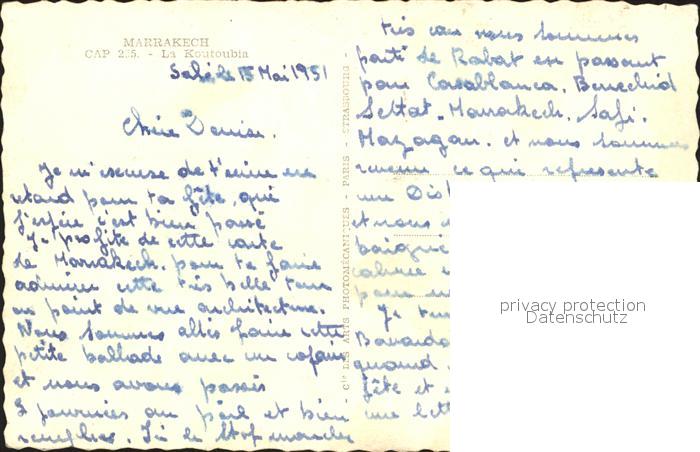 MARRAKECH
CAP 235. - La Koutoubia
Salé le 15 Mai 1951
Chère Denise.
Je m'escuse de t'écrire en
retard pour ta fête, qui
j'espère c'est bien passé
Je profite de cette carte
de Marrakech. pour te faire
admirer cette très belle tour
au point de vue architecture.
Nous sommes allés faire cette
petite ballade avec un copain
et nous avons passés
2 journées au poil et bien
remplies. Ici le Stop marche
très car nous sommes
parti de Rabat en passant
par Casablanca. Berrechid
Settat. Marrakech. Safi.
Mazagan. et nous sommes
revenu ce qui représente
une Dis
et nous
baigne
pour
Je
Bavarda
quand
fête et
une lett
Cie DES ARTS PHOTOMÉCANIQUES - PARIS - STRASBOURG -
privacy protection
Datenschutz